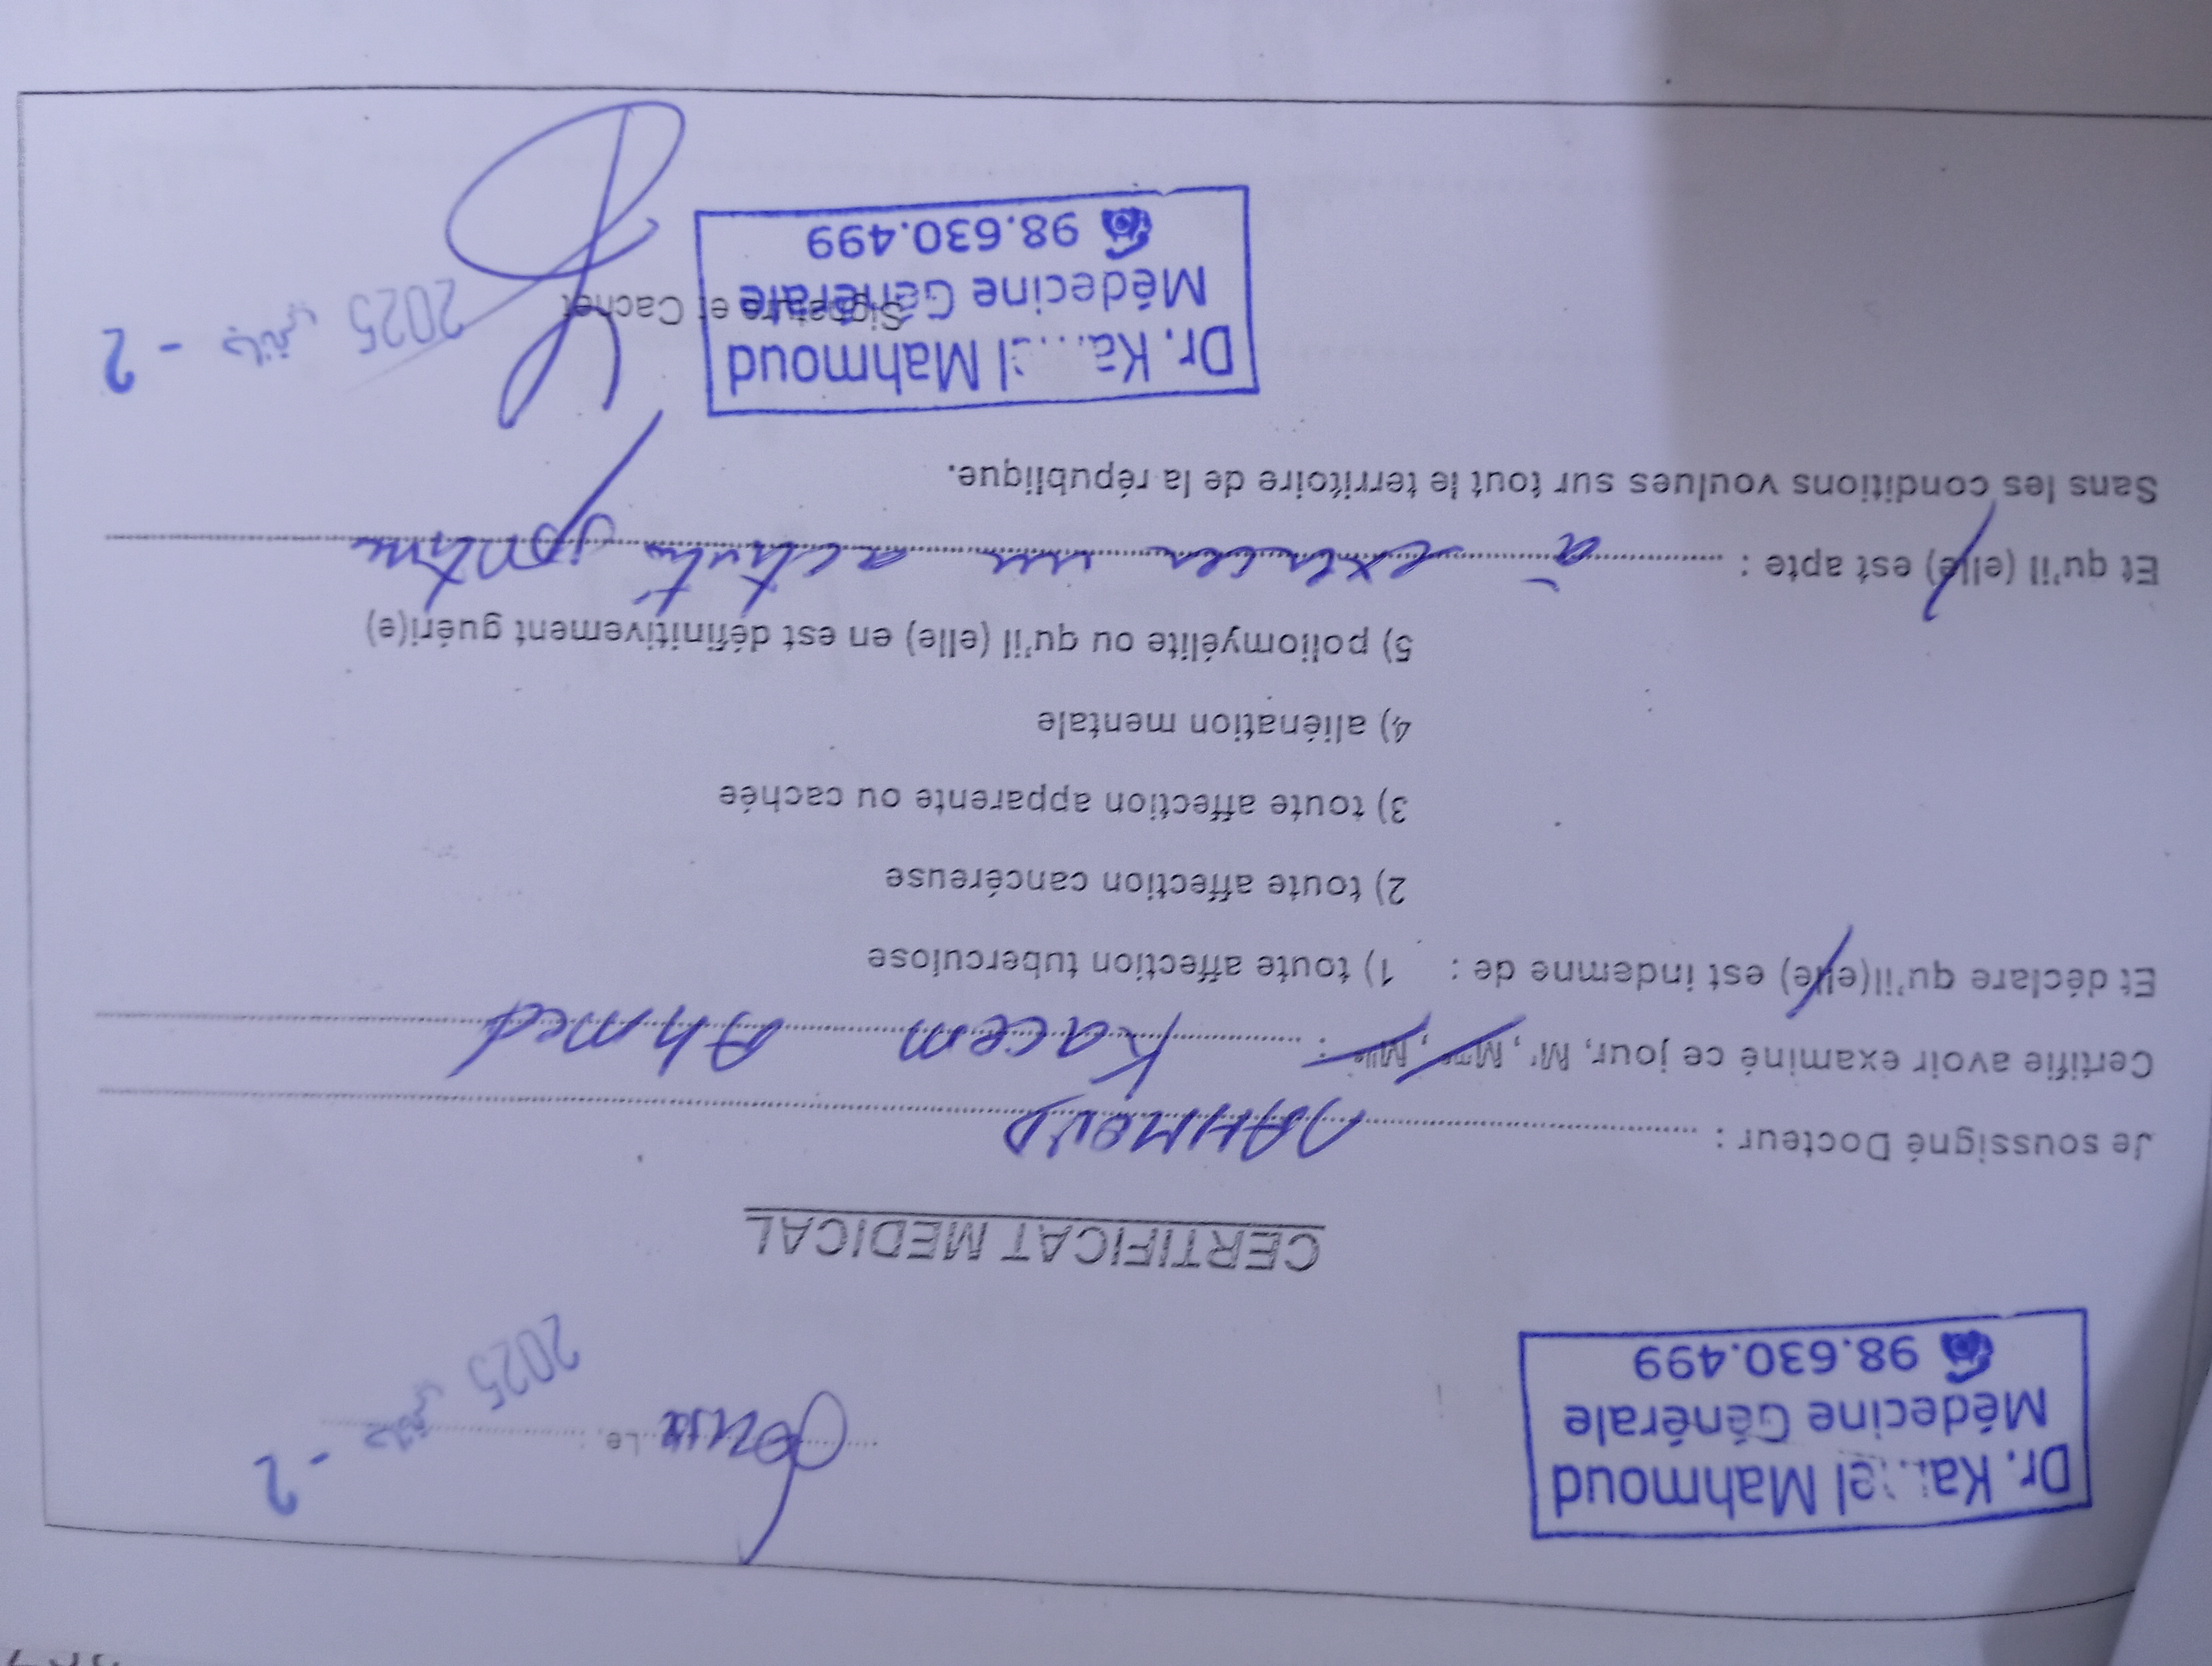 Dr. Ka...el Mahmoud
Médecine Générale
98.630.499
Le :
2 - 2025
CERTIFICAT MEDICAL
Je soussigné Docteur : MAHMOUD
Certifie avoir examiné ce jour, Mr, Mme, Mlle : Kacem Ahmed
Et déclare qu'il(elle) est indemne de : 1) toute affection tuberculose
2) toute affection cancéreuse
3) toute affection apparente ou cachée
4) aliénation mentale
5) poliomyélite ou qu'il (elle) en est définitivement guéri(e)
Et qu'il (elle) est apte : à exercer une activité sportive
Sans les conditions voulues sur tout le territoire de la république.
Dr. Ka...el Mahmoud
Médecine Générale
98.630.499
Signature et Cachet
2 - 2025